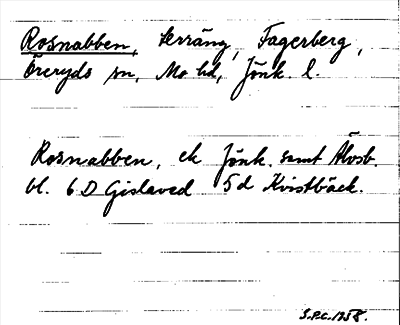 Rosnabben, terräng, Fagerberg,
Öreryds sn, Mo hd, Jönk. l.
Rosnabben, ek Jönk. samt Älvsb.
bl. 6 D Gislaved 5d Kvistbäck.
S.P.C. 1958.